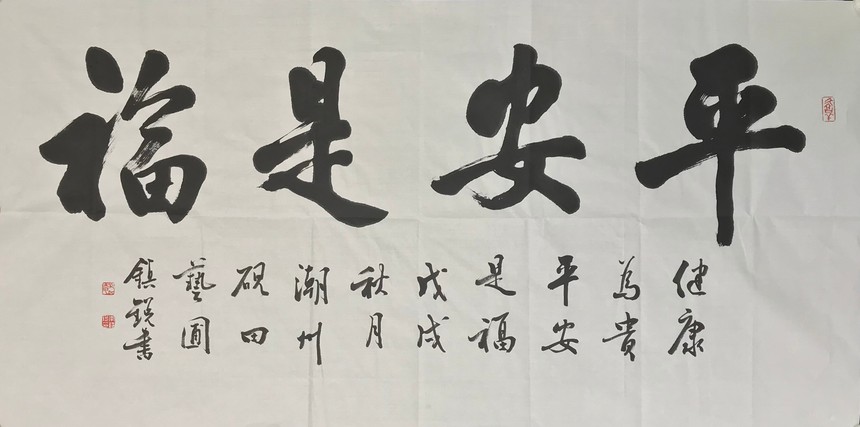 平安是福
健康
為貴
平安
是福
戊戌
秋月
潮州
硯田
藝圃
鎮銳書